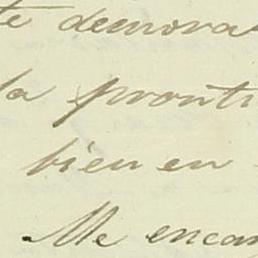 te demora
la pronti
bien en
Me encan